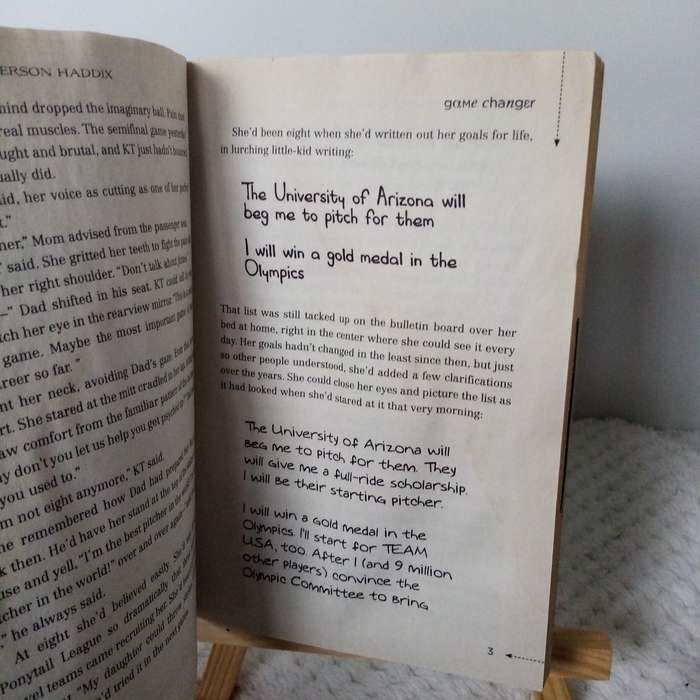 ERSON HADDIX
mind dropped the imaginary ball.
real muscles. The semifinal game yesterday
ught and brutal, and KT just hadn't
ually did.
aid, her voice as cutting as one of her
t."
ner," Mom advised from the passenger seat.
said. She gritted her teeth to fight the
her right shoulder. "Don't talk about
—" Dad shifted in his seat. KT could
tch her eye in the rearview mirror.
game. Maybe the most important game
reer so far."
nt her neck, avoiding Dad's gaze.
rt. She stared at the mitt cradled in her
aw comfort from the familiar pattern of the
y don't you let us help you get psyched up?
you used to."
m not eight anymore," KT said.
he remembered how Dad had
k then. He'd have her stand at the top of
use and yell, "I'm the best pitcher in the
tcher in the world!" over and over again
," he always said.
At eight she'd believed easily. She'd
Ponytail League so dramatically that
vel teams came recruiting her. She'd
"My daughter could throw
e'd tried it in the next
game changer
She'd been eight when she'd written out her goals for life,
in lurching little-kid writing:
The University of Arizona will
beg me to pitch for them
I will win a gold medal in the
Olympics
That list was still tacked up on the bulletin board over her
bed at home, right in the center where she could see it every
day. Her goals hadn't changed in the least since then, but just
so other people understood, she'd added a few clarifications
over the years. She could close her eyes and picture the list as
it had looked when she'd stared at it that very morning:
The University of Arizona will
beg me to pitch for them. They
will give me a full-ride scholarship.
I will be their starting pitcher.
I will win a gold medal in the
Olympics. I'll start for TEAM
USA, too. After I (and 9 million
other players) convince the
Olympic Committee to bring
3